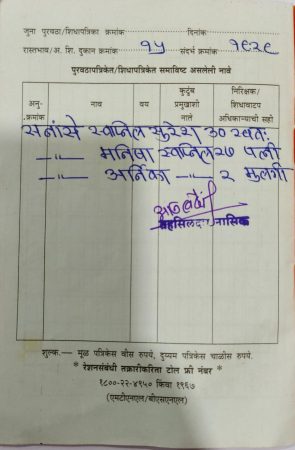 जुना पुरवठा/शिधापत्रिका क्रमांक दिनांक
रास्तभाव/अ. शि. दुकान क्रमांक १५ संदर्भ क्रमांक १९२९
पुरवठापत्रिकेत/शिधापत्रिकेत समाविष्ट असलेली नावे
अनु-क्रमांक नाव वय कुटुंब प्रमुखाशी नाते निरिक्षक/शिधावाटप अधिकाऱ्याची सही
सनांसे स्वप्निल सुरेश ३० स्वतः
—"— मनिषा स्वप्निल २७ पत्नी
—"— अर्निका —"— २ मुलगी
तहसिलदार नासिक
शुल्क.— मूळ पत्रिकेस वीस रुपये, दुय्यम पत्रिकेस चाळीस रुपये.
* रेशनसंबंधी तक्रारीकरिता टोल फ्री नंबर *
१८००-२२-४९५० किंवा १९६७
(एमटीएनएल/बीएसएनएल)